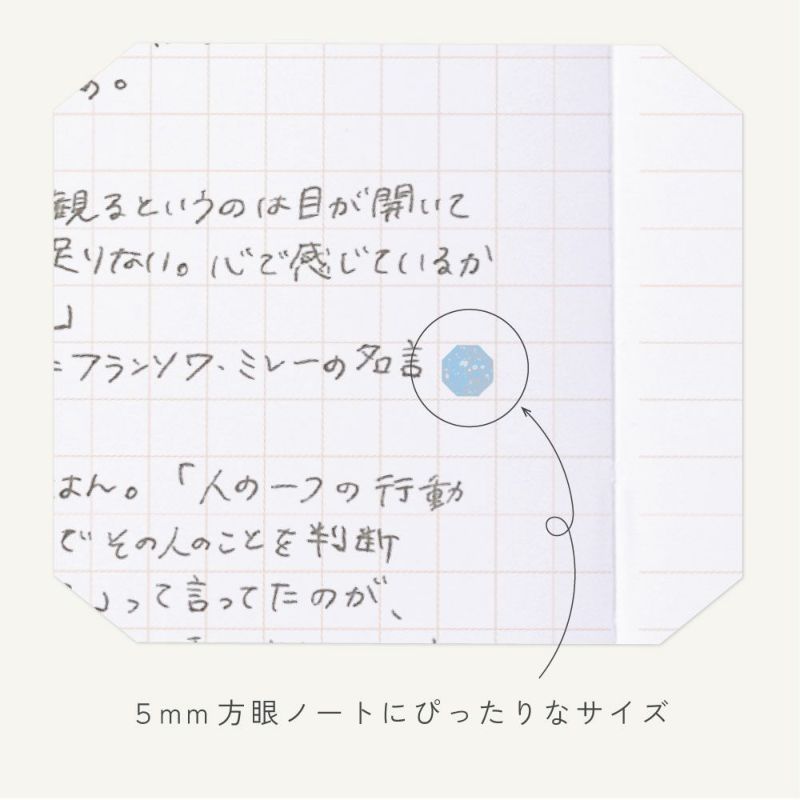 う。
観るというのは目が開いて
足りない。心で感じているか
」
=フランソワ・ミレーの名言
はん。「人の一つの行動
でその人のことを判断
」って言ってたのが、
5mm方眼ノートにぴったりなサイズ